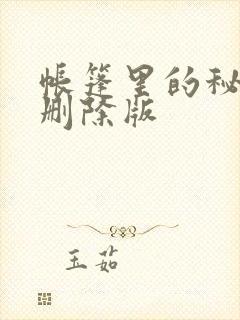 帐篷里的秘
删除版
玉茹